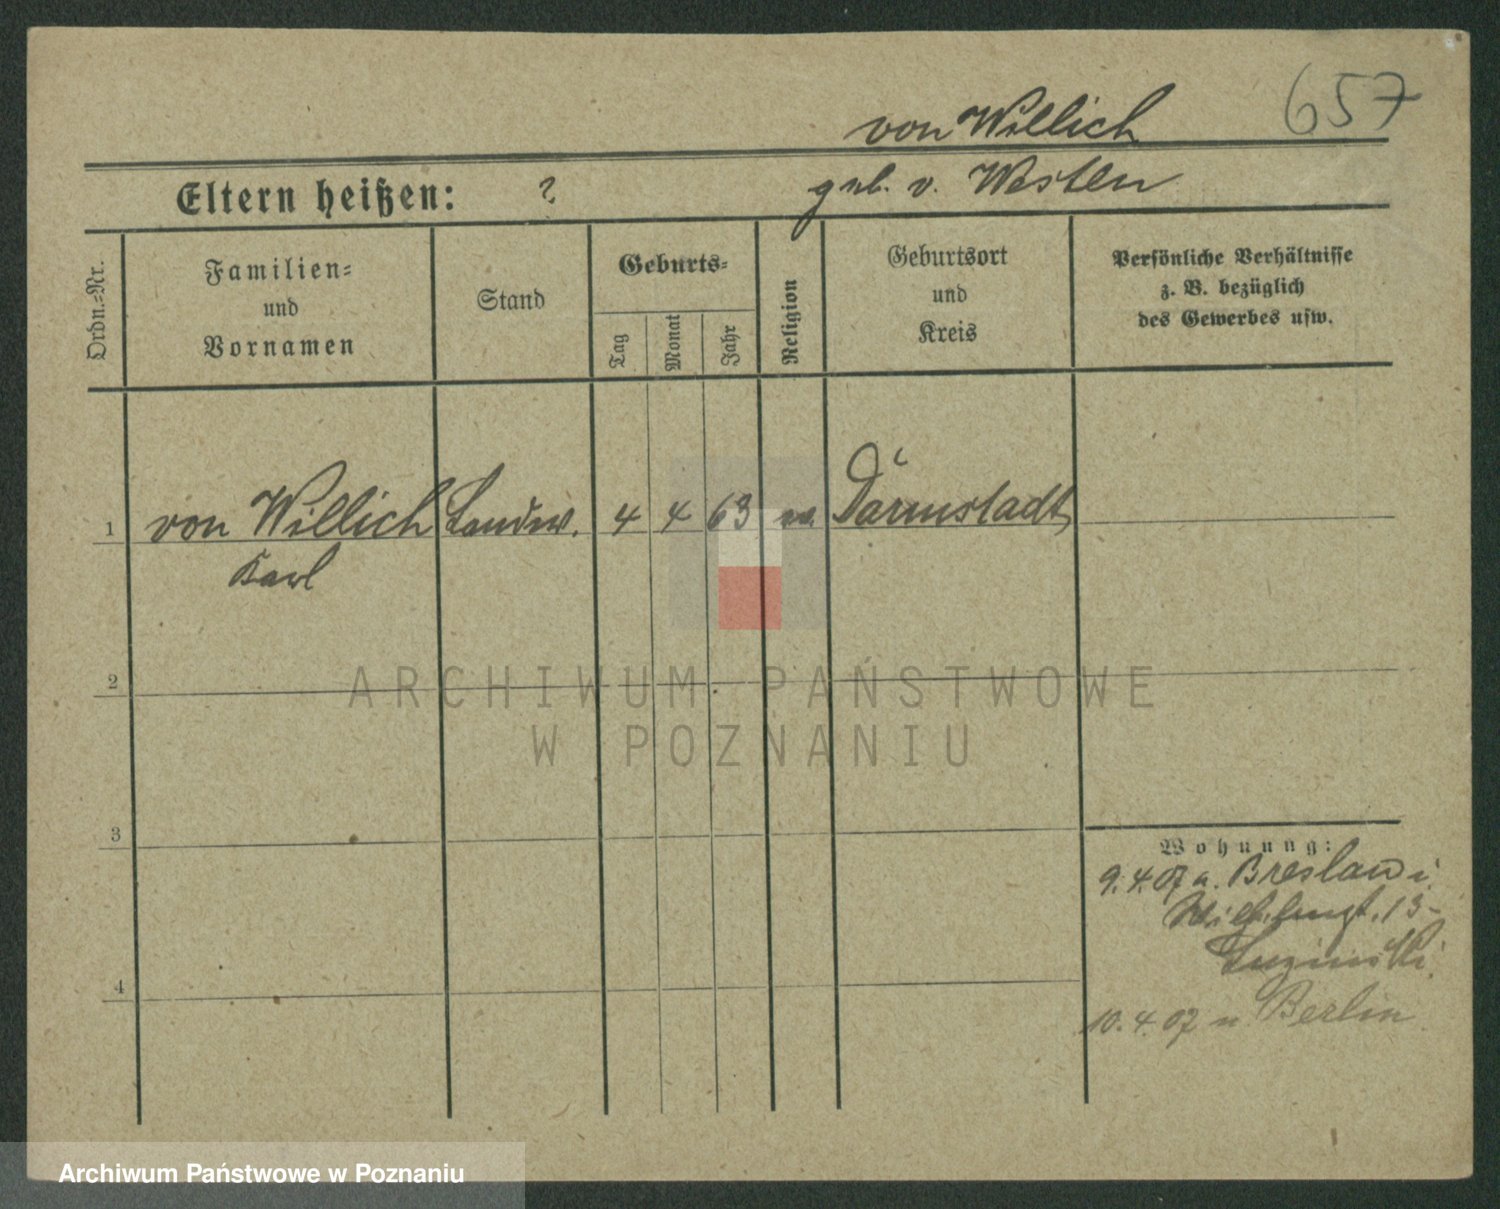 657
von Willich
Eltern heißen: ? geb. v. Westen
Ordn.=Nr.
Familien=
und
Vornamen
Stand
Geburts=
Tag
Monat
Jahr
Religion
Geburtsort
und
Kreis
Persönliche Verhältnisse
z. B. bezüglich
des Gewerbes usw.
1 von Willich Landw. 4 4 63 Darmstadt
Karl
2
3
4
Wohnung:
9.4.07 a. Breslau i.
13
10.4.07 n Berlin
ARCHIWUM PAŃSTWOWE
W POZNANIU
Archiwum Państwowe w Poznaniu